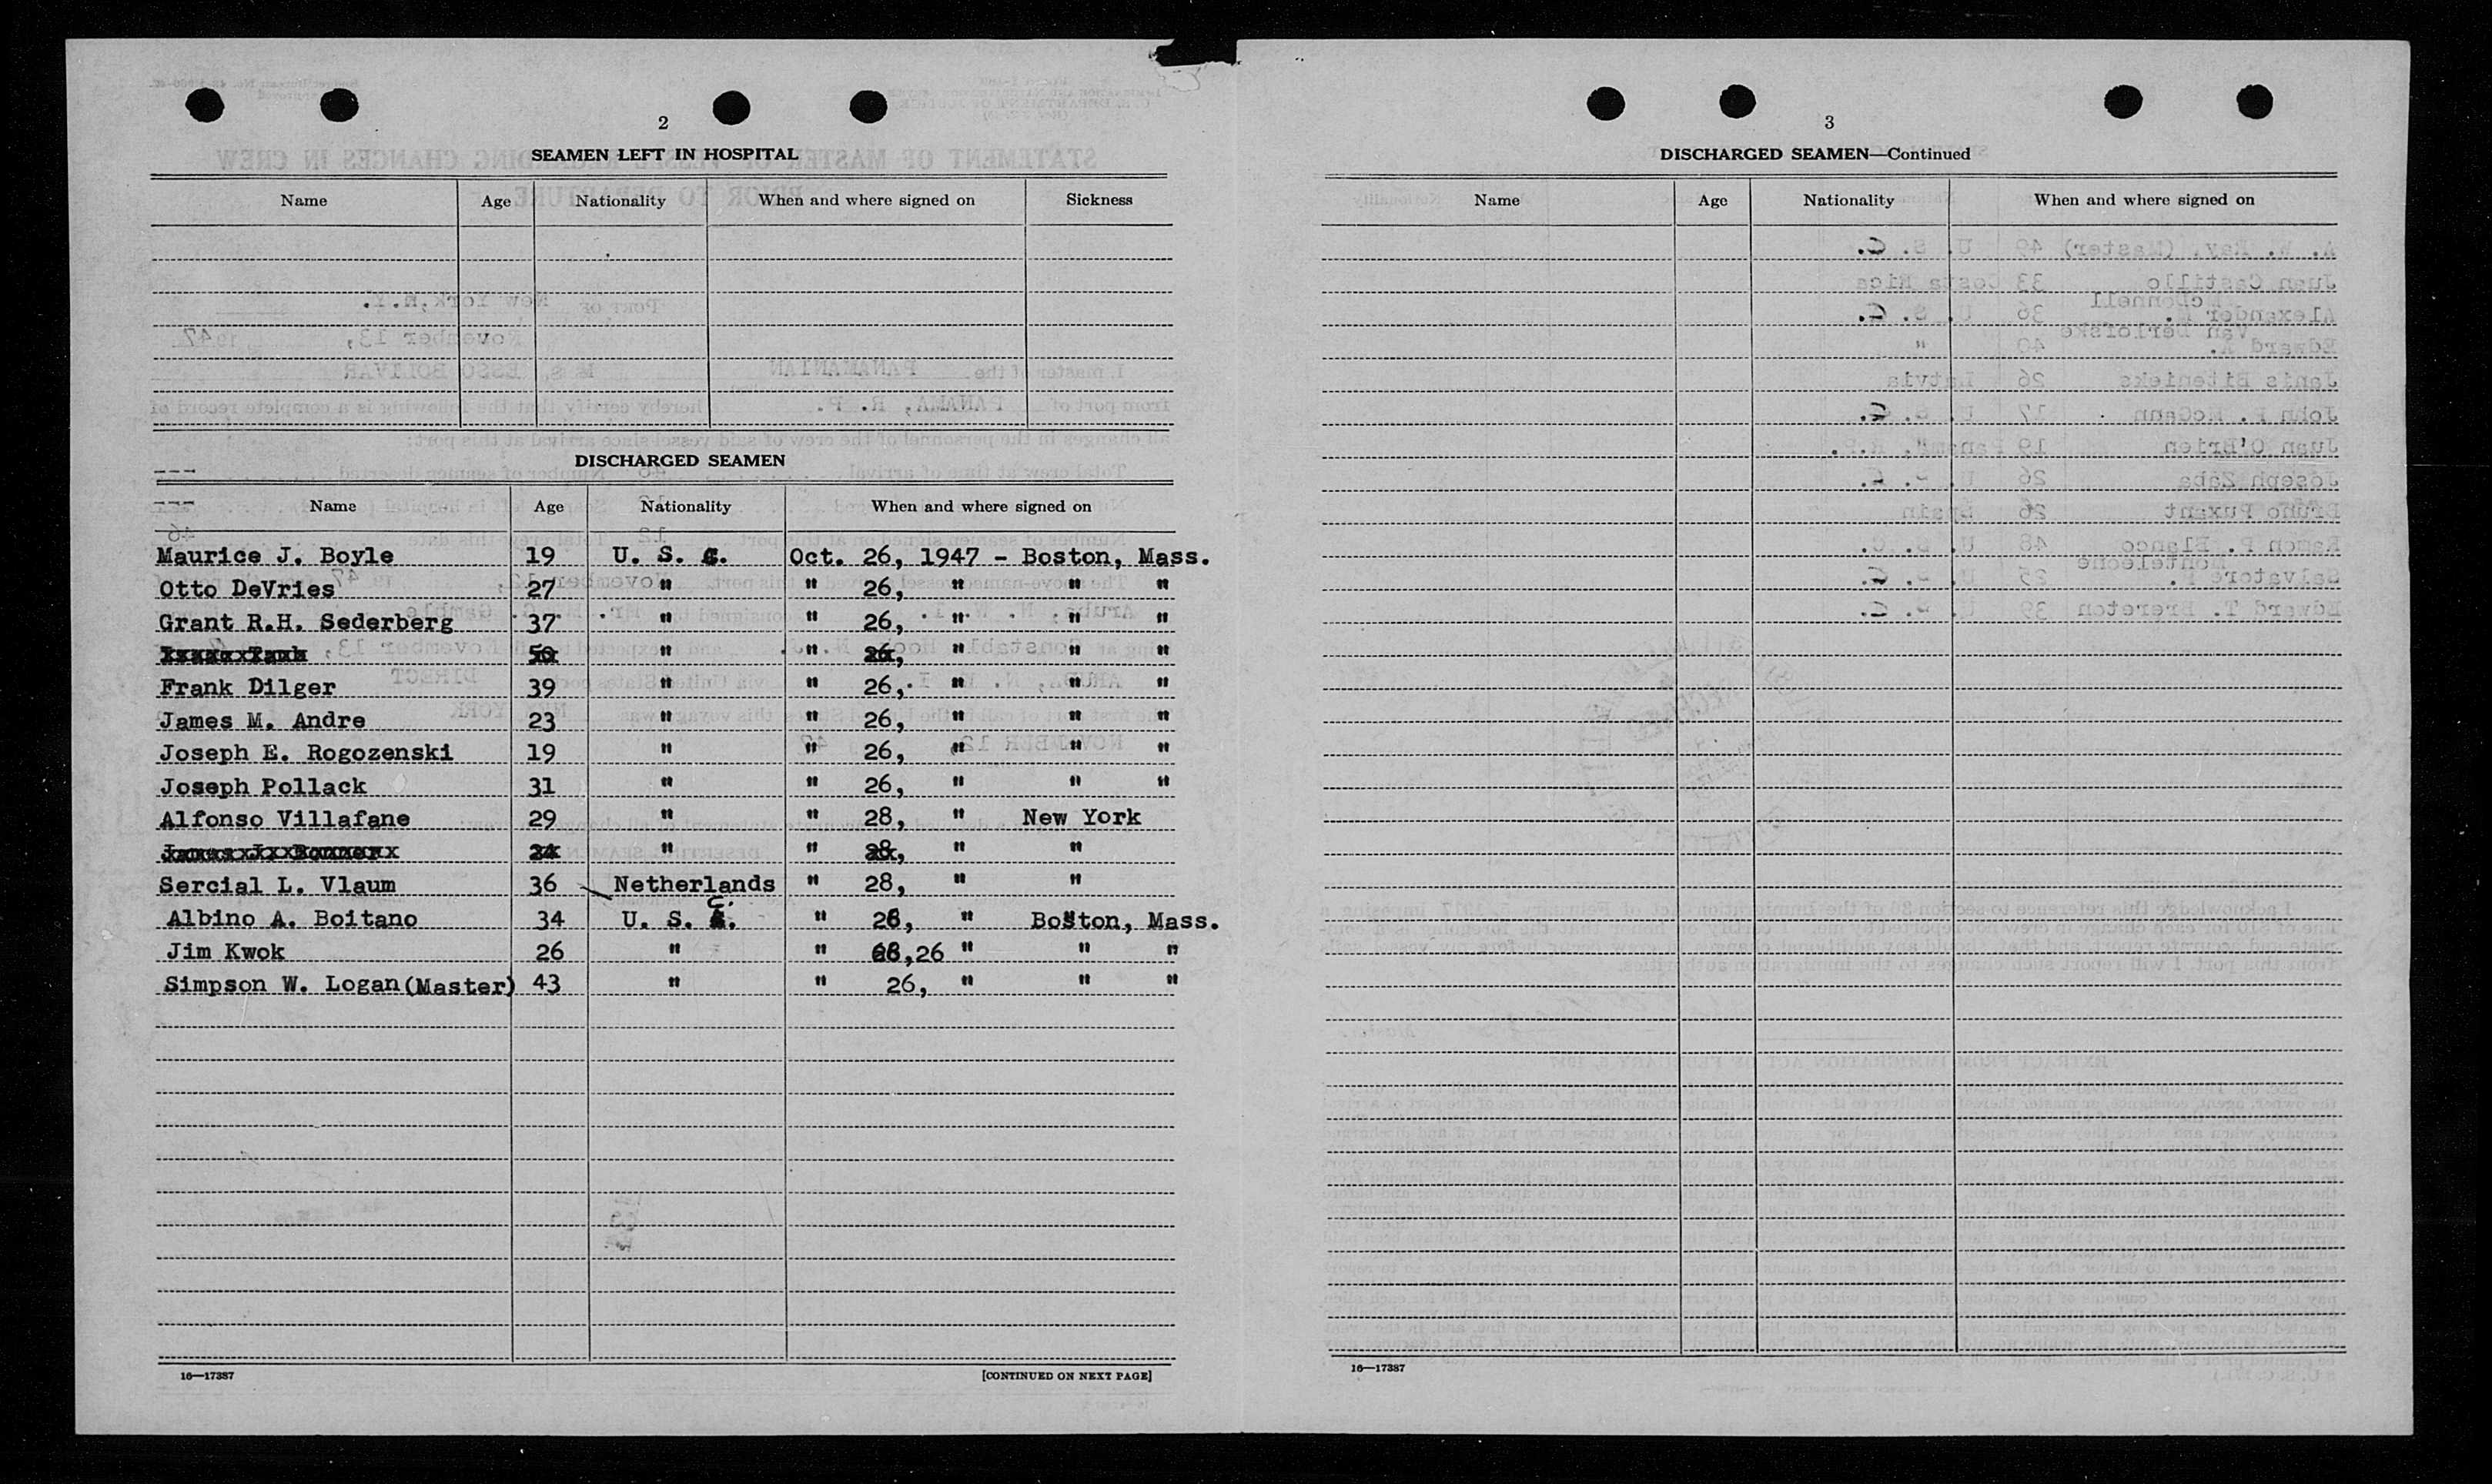 2
SEAMEN LEFT IN HOSPITAL
Name Age Nationality When and where signed on Sickness
DISCHARGED SEAMEN
Name Age Nationality When and where signed on
Maurice J. Boyle 19 U. S. C. Oct. 26, 1947 - Boston, Mass.
Otto DeVries 27 " " 26, " " "
Grant R.H. Sederberg 37 " " 26, " " "
" " 26, " " "
Frank Dilger 39 " " 26, " " "
James M. Andre 23 " " 26, " " "
Joseph E. Rogozenski 19 " " 26, " " "
Joseph Pollack 31 " " 26, " " "
Alfonso Villafane 29 " " 28, " New York
" " 28, " "
Sercial L. Vlaum 36 Netherlands " 28, " "
Albino A. Boitano 34 U. S. C. " 26, " Boston, Mass.
Jim Kwok 26 " " 26 " " "
Simpson W. Logan(Master) 43 " " 26, " " "
16—17387 [CONTINUED ON NEXT PAGE]
3
DISCHARGED SEAMEN—Continued
Name Age Nationality When and where signed on
16—17387